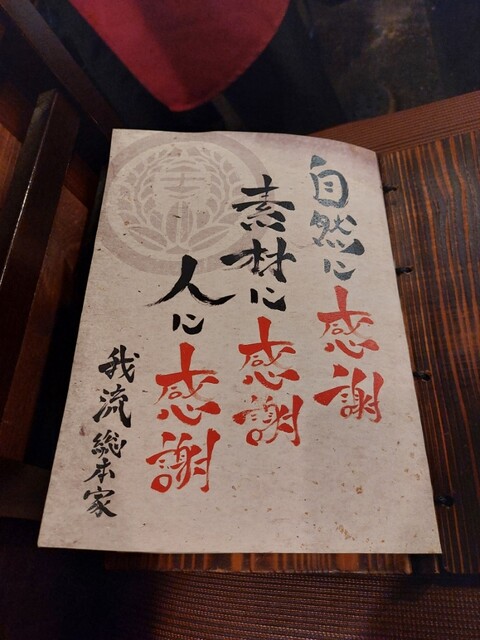 自然に感謝
素材に感謝
人に感謝
我流総本家